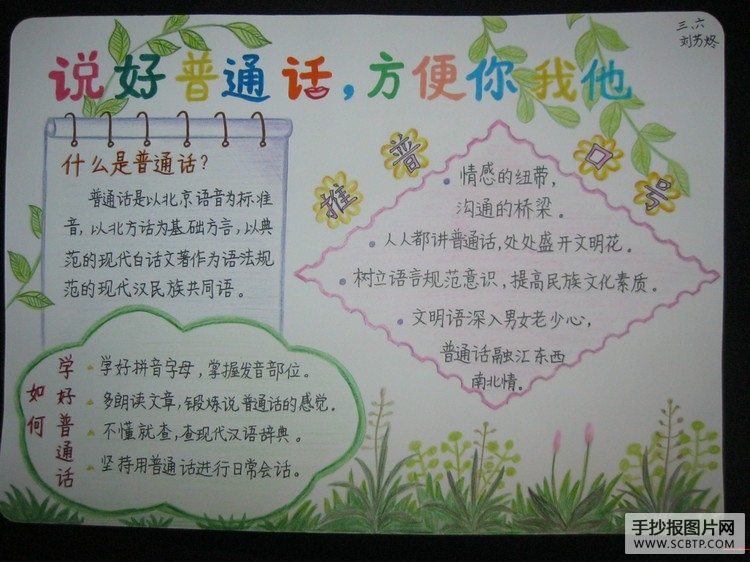 三.六
刘芳烙
说好普通话,方便你我他
什么是普通话?
普通话是以北京语音为标准
音,以北方话为基础方言,以典
范的现代白话文著作为语法规
范的现代汉民族共同语。
推普口号
情感的纽带,
沟通的桥梁。
人人都讲普通话,处处盛开文明花。
树立语言规范意识,提高民族文化素质。
文明语深入男女老少心,
普通话融汇东西
南北情。
如何
学好普通话
学好拼音字母,掌握发音部位。
多朗读文章,锻炼说普通话的感觉。
不懂就查,查现代汉语辞典。
坚持用普通话进行日常会话。
手抄报图片网
WWW.SCBTP.COM